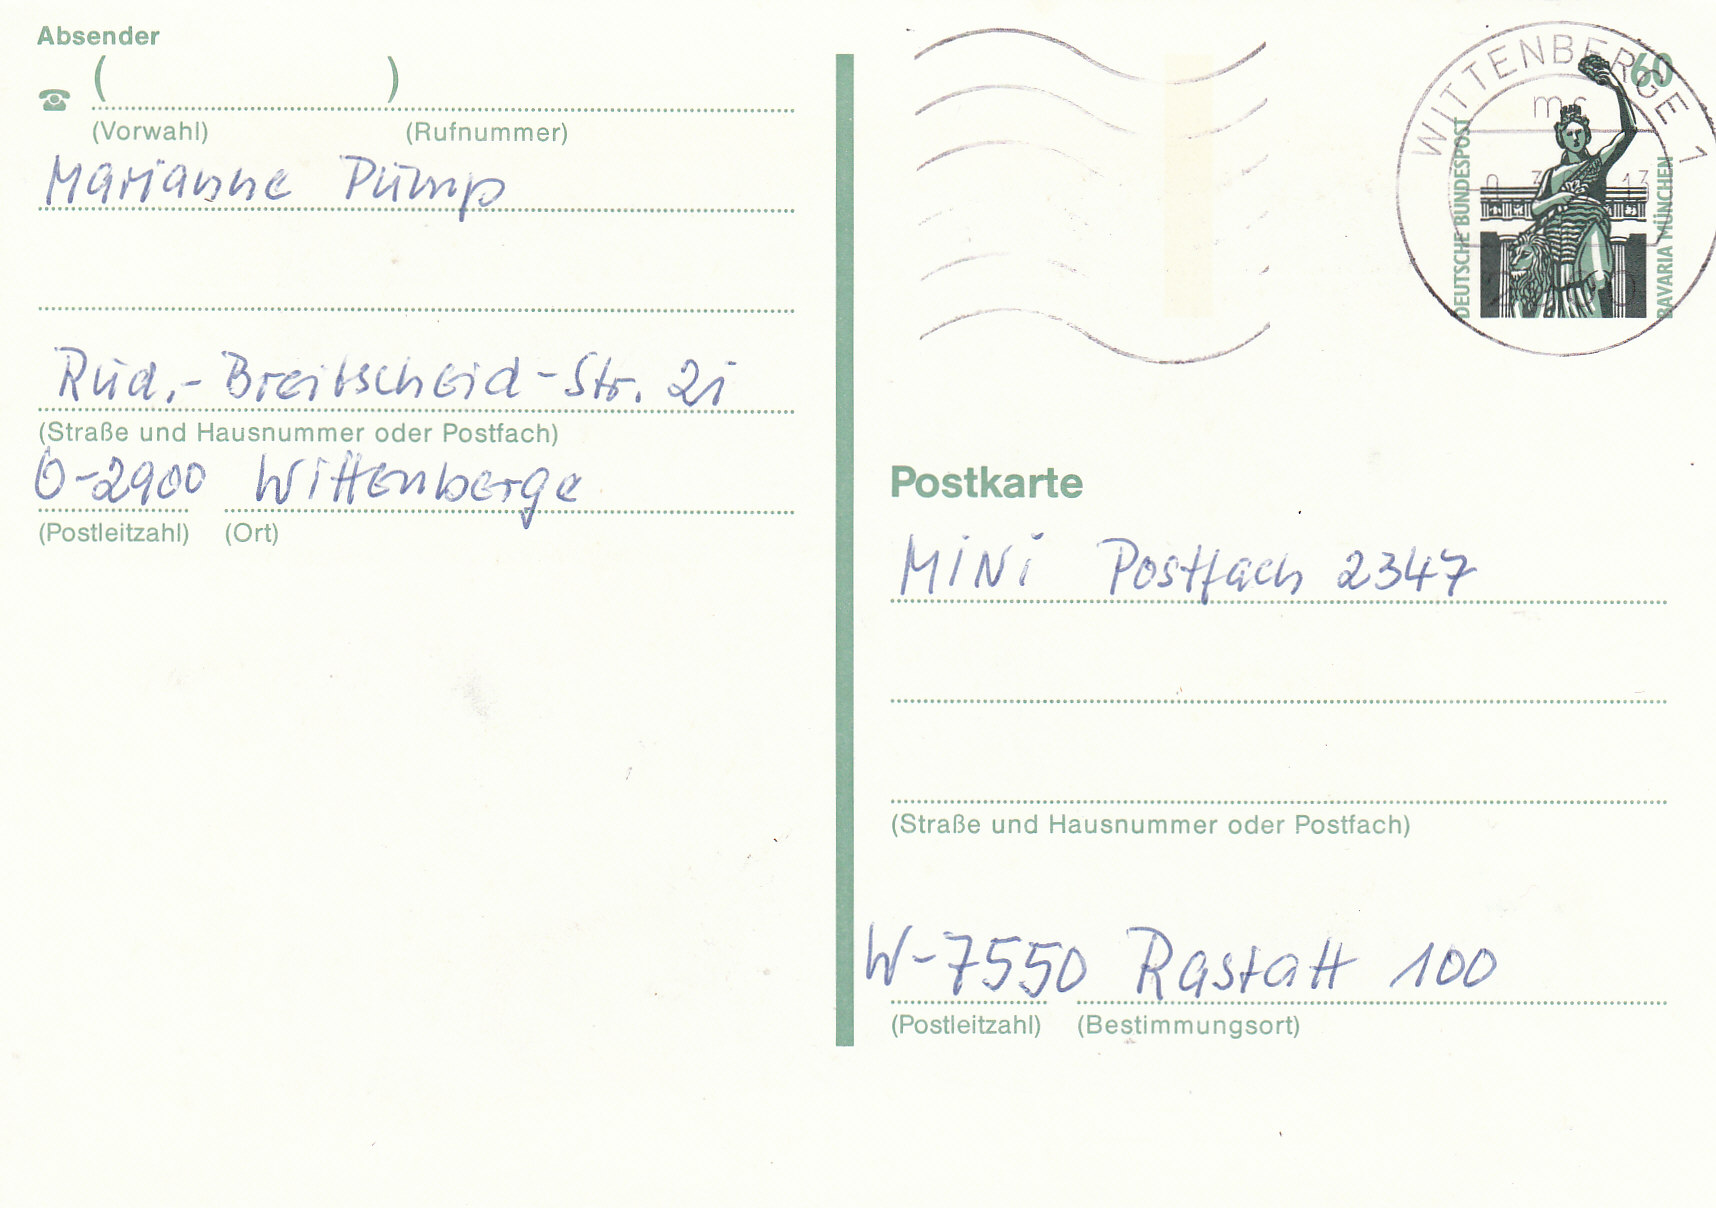 Absender
( )
(Vorwahl) (Rufnummer)
Marianne Pump
Rud.-Breitscheid-Str. 2i
(Straße und Hausnummer oder Postfach)
O-2900 Wittenberge
(Postleitzahl) (Ort)
WITTENBERGE 1
60
DEUTSCHE BUNDESPOST
BAVARIA MÜNCHEN
Postkarte
MiNi Postfach 2347
(Straße und Hausnummer oder Postfach)
W-7550 Rastatt 100
(Postleitzahl) (Bestimmungsort)